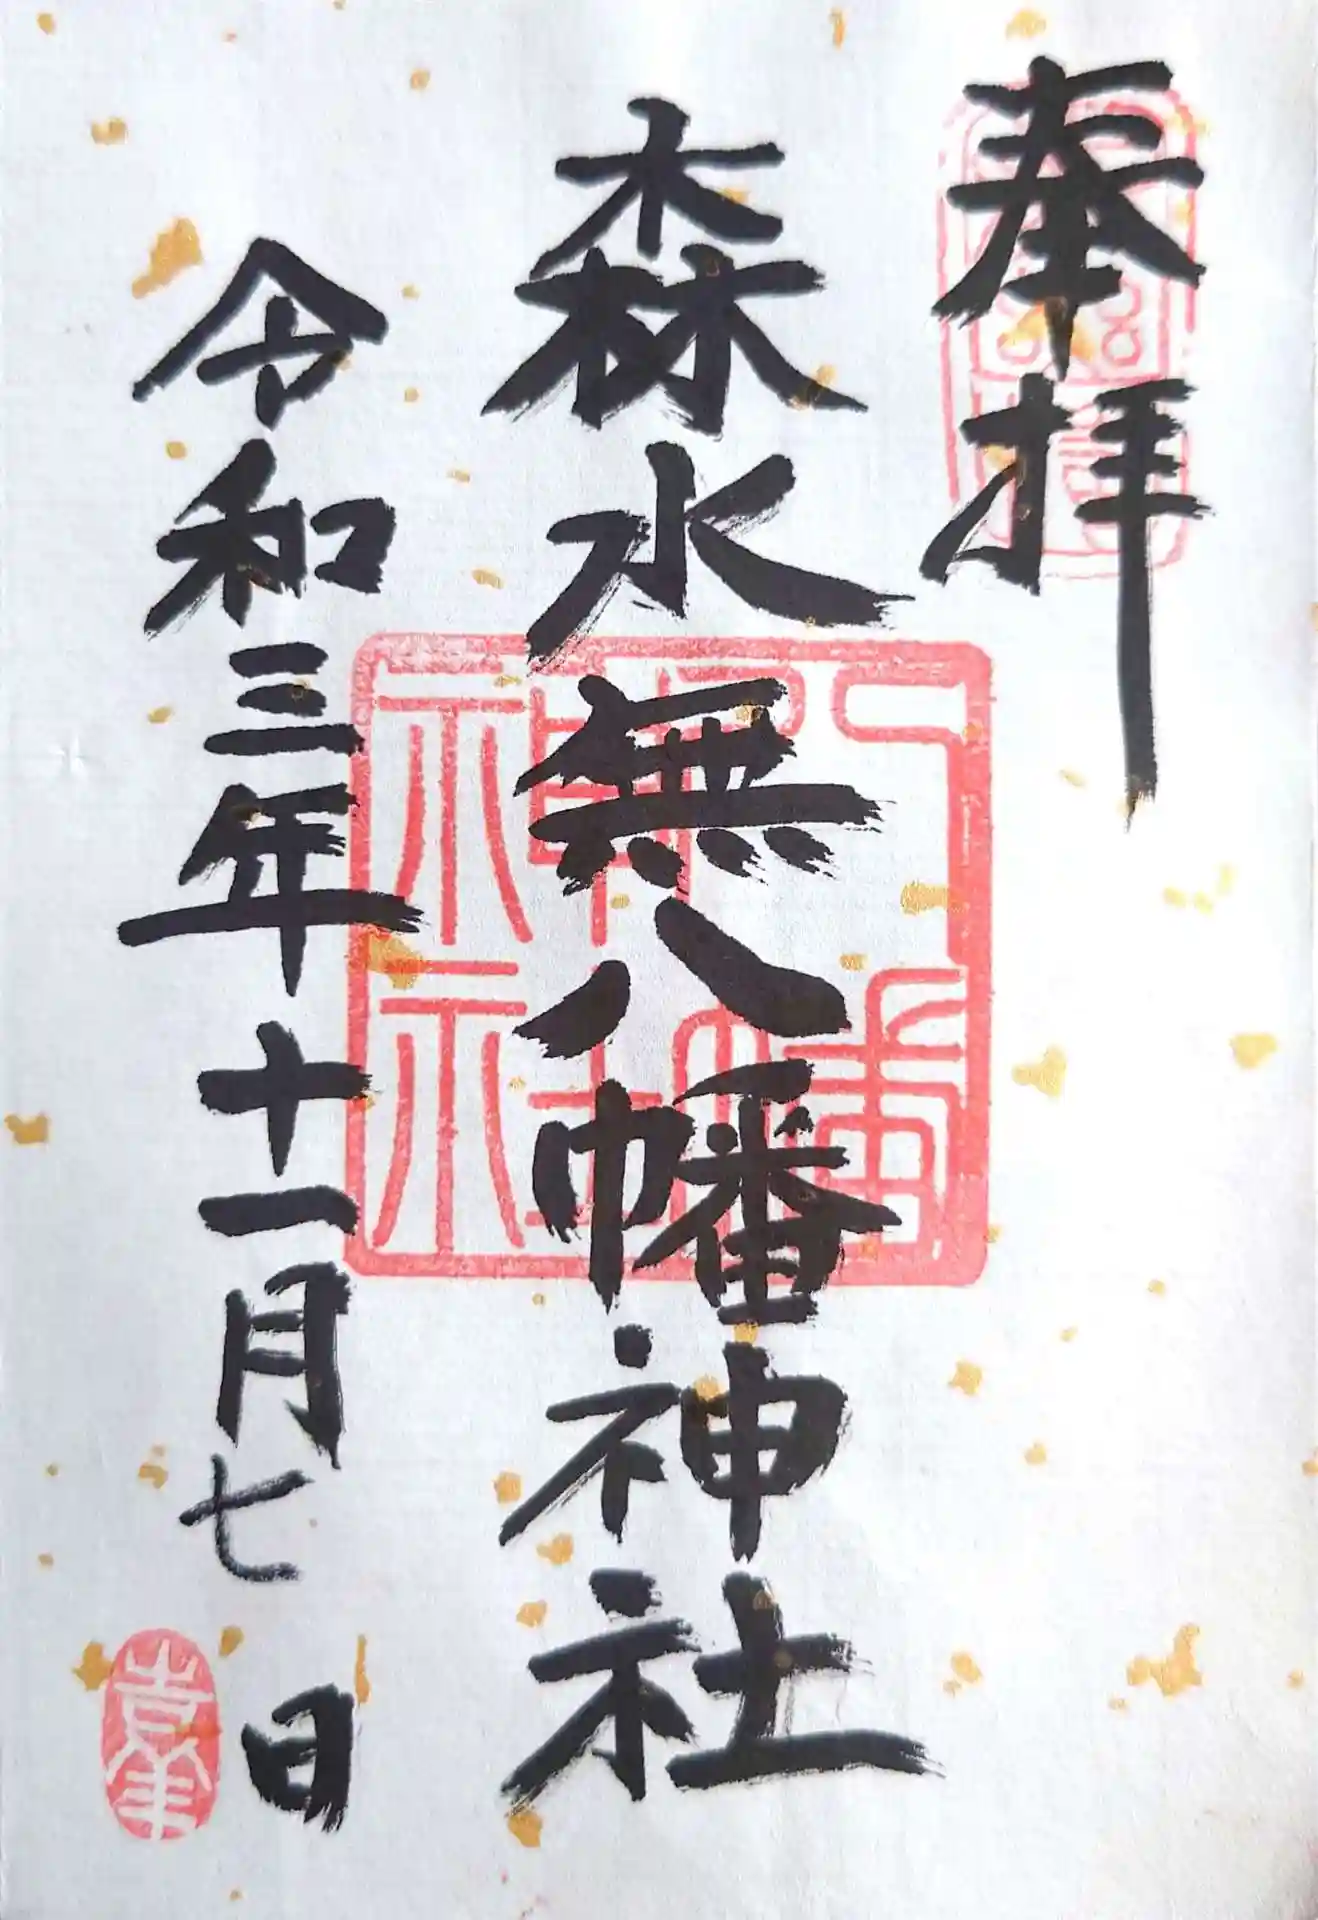 奉拝
森水無八幡神社
令和三年十一月七日
八幡
神社